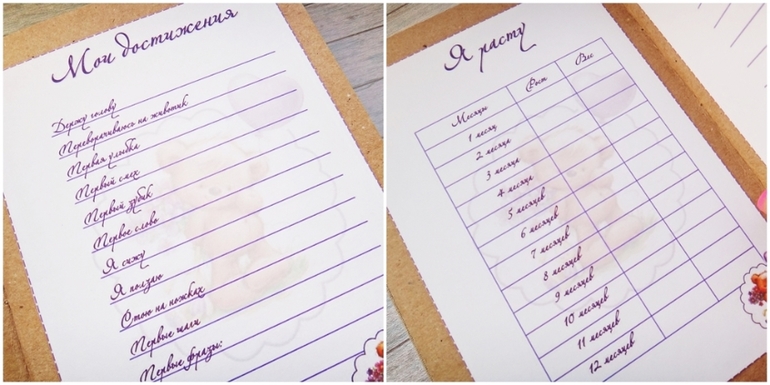 Мои достижения
Держу голову
Переворачиваюсь на животик
Первая улыбка
Первый смех
Первый зубик
Первое слово
Я сижу
Я ползаю
Стою на ножках
Первые шаги
Первые фразы:
Я расту
Месяцы Рост Вес
1 месяц
2 месяца
3 месяца
4 месяца
5 месяцев
6 месяцев
7 месяцев
8 месяцев
9 месяцев
10 месяцев
11 месяцев
12 месяцев